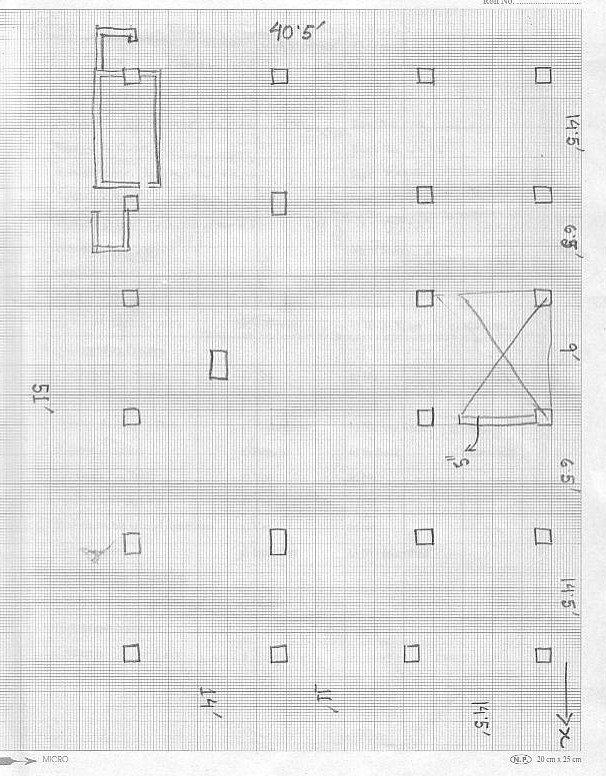 Roll No.
40.5'
14.5'
6.5'
9'
51'
5"
6.5'
14.5'
14'
11'
14.5'
x
MICRO
N.P. 20 cm x 25 cm